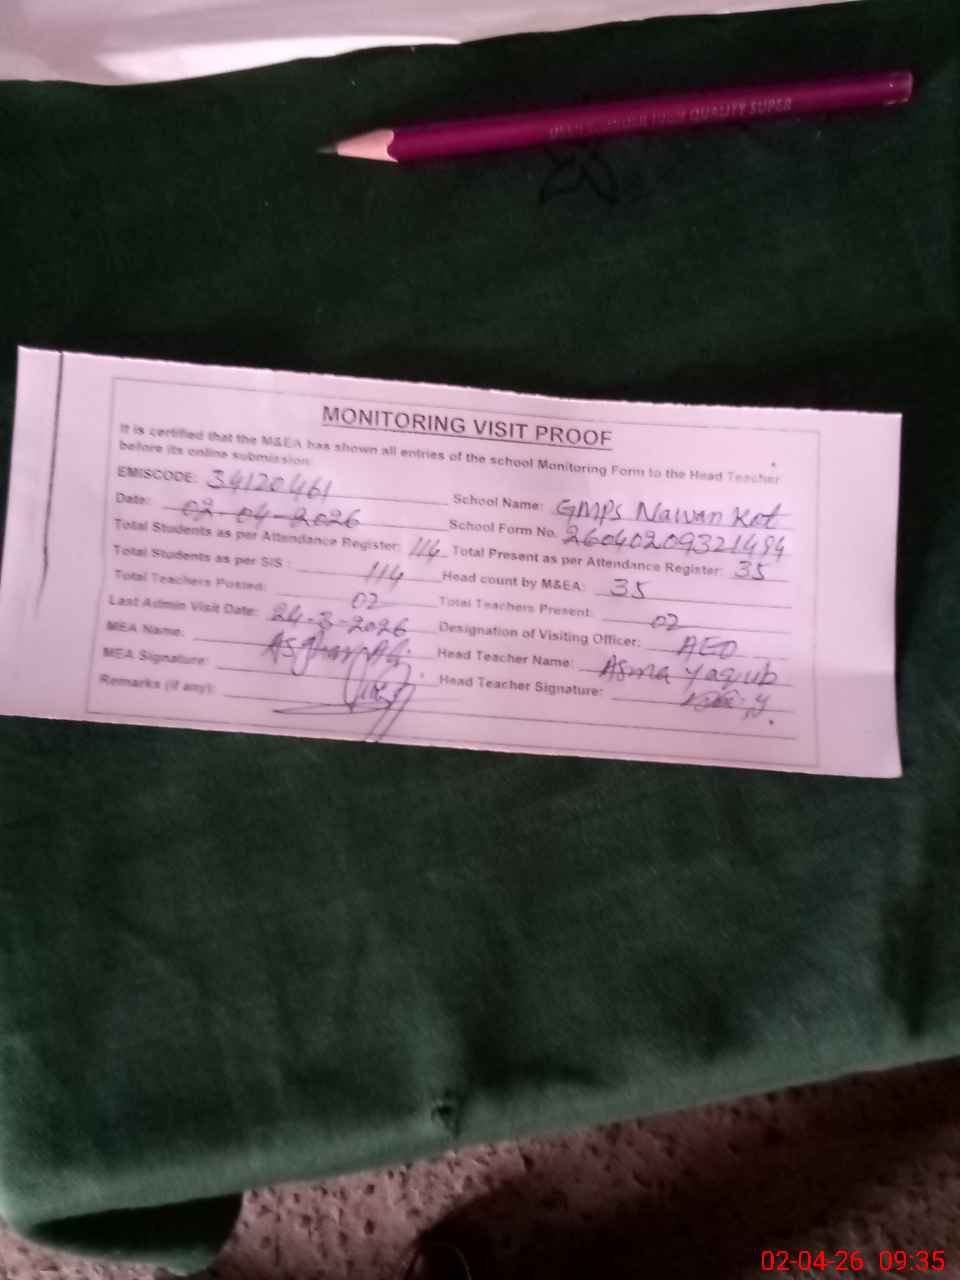 HIGH QUALITY SUPER
MONITORING VISIT PROOF
It is certified that the M&EA has shown all entries of the school Monitoring Form to the Head Teacher
before its online submission:
EMISCODE: 34120461 School Name: GMPS Nawan Kot
Date: 02-04-2026 School Form No. 26040209321494
Total Students as per Attendance Register: 114 Total Present as per Attendance Register: 35
Total Students as per SIS : 114 Head count by M&EA: 35
Total Teachers Posted: 02 Total Teachers Present: 02
Last Admin Visit Date: 24-3-2026 Designation of Visiting Officer: AEO
MEA Name: Asghar Ali Head Teacher Name: Asma Yaqub
MEA Signature: Head Teacher Signature:
Remarks (if any):
02-04-26 09:35